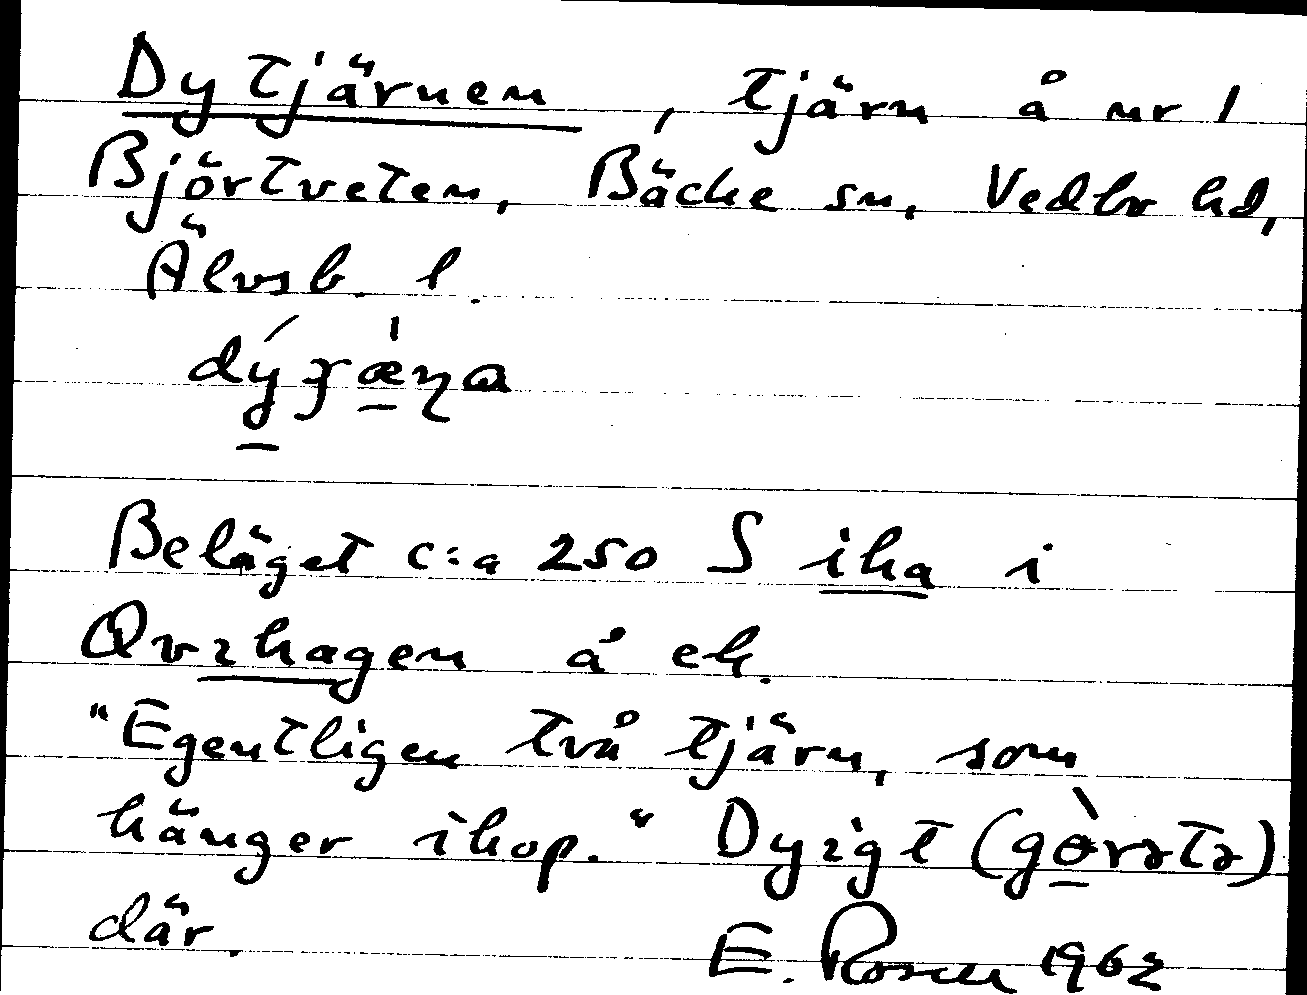 Dytjärnen, tjärn å nr 1
Björtveten, Bäcke sn, Vedbo hd,
Älvsb. l.
Beläget c:a 250 S ika i
Kvzhagen å ek.
"Egentligen två tjärn, som
hänger ihop." Dyigt (gòrətə)
där.
E. Rosen 1962